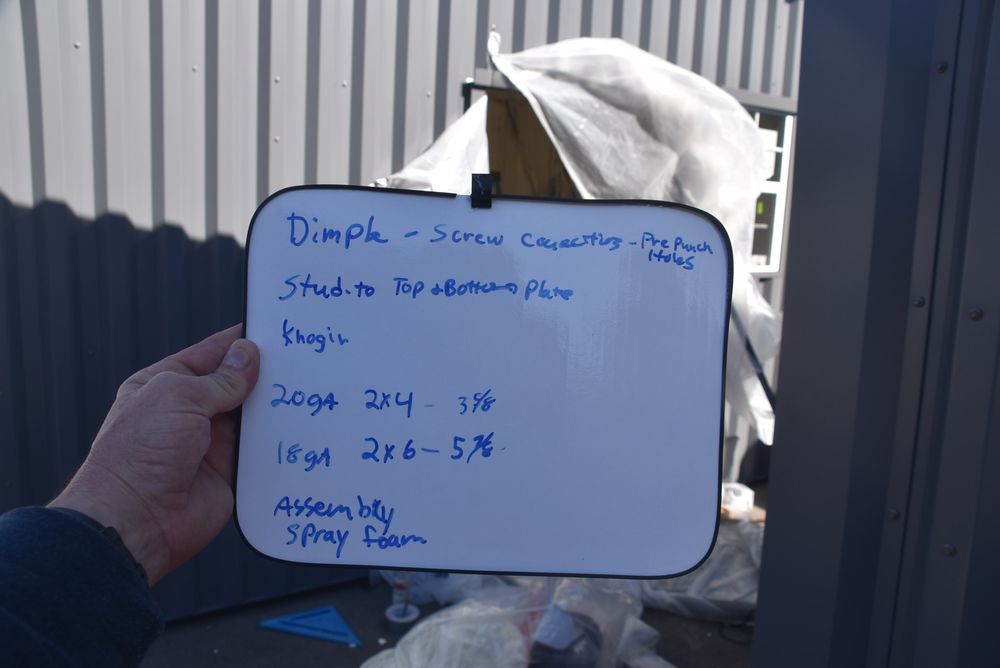 Dimple - Screw Connections - Pre Punch
Holes
Stud to Top & Bottom Plate
20gA 2x4 - 3 5/8
18gA 2x6 - 5 7/8
Assembly
Spray foam